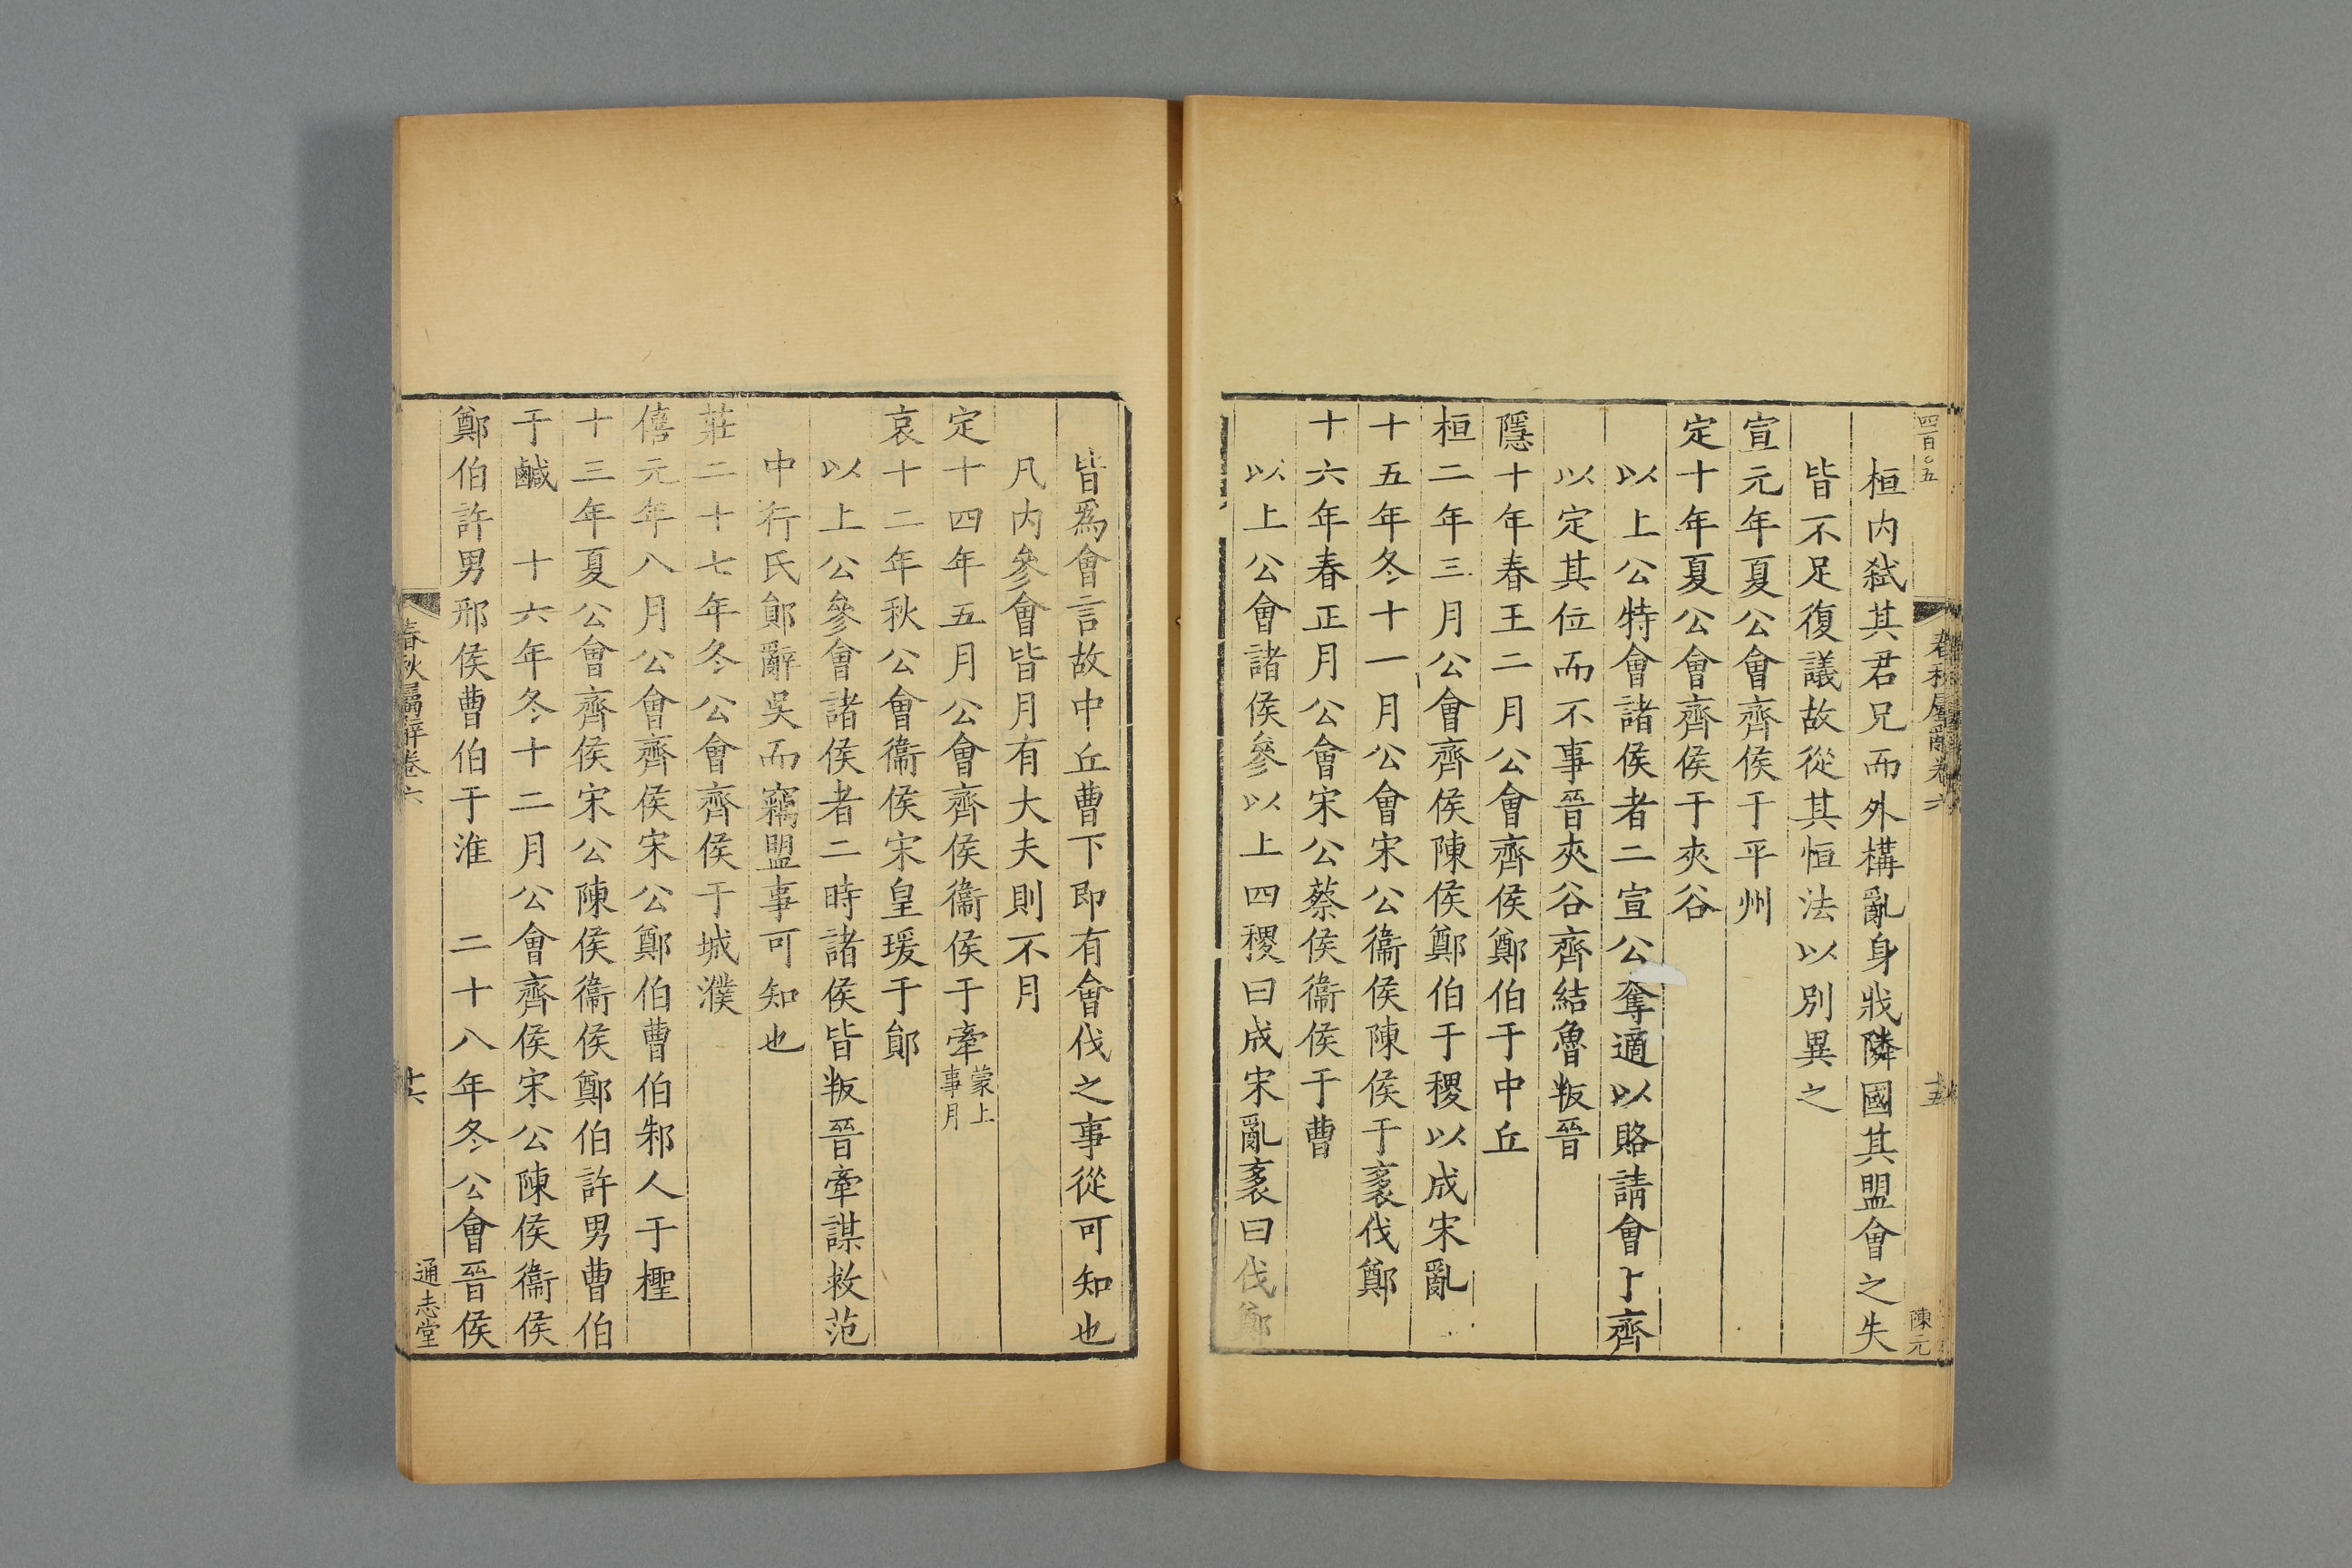 四百○五
春秋屬辭卷六
十五
陳元
桓内弑其君兄而外構亂身戕隣國其盟會之失
皆不足復議故從其恒法以別異之
宣元年夏公會齊侯于平州
定十年夏公會齊侯于夾谷
以上公特會諸侯者二宣公奪適以賂請會于齊
以定其位而不事晉夾谷齊結魯叛晉
隱十年春王二月公會齊侯鄭伯于中丘
桓二年三月公會齊侯陳侯鄭伯于稷以成宋亂
十五年冬十一月公會宋公衞侯陳侯于袲伐鄭
十六年春正月公會宋公蔡侯衞侯于曹
以上公會諸侯參以上四稷曰成宋亂袲曰伐鄭
皆爲會言故中丘曹下即有會伐之事從可知也
凡内參會皆月有大夫則不月
定十四年五月公會齊侯衞侯于牽蒙上事月
哀十二年秋公會衞侯宋皇瑗于鄖
以上公參會諸侯者二時諸侯皆叛晉牽謀救范
中行氏鄖辭吳而竊盟事可知也
莊二十七年冬公會齊侯于城濮
僖元年八月公會齊侯宋公鄭伯曹伯邾人于檉
十三年夏公會齊侯宋公陳侯衞侯鄭伯許男曹伯
于鹹 十六年冬十二月公會齊侯宋公陳侯衞侯
鄭伯許男邢侯曹伯于淮 二十八年冬公會晉侯
春秋屬辭卷六
十六
通志堂